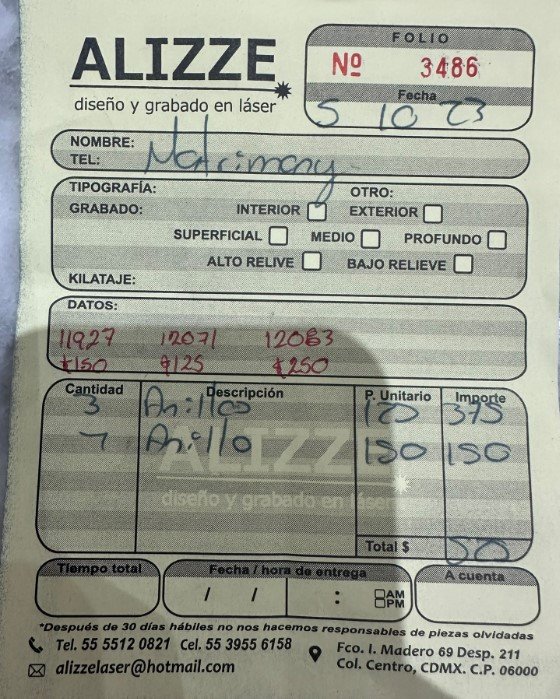 ALIZZE
diseño y grabado en láser
FOLIO
Nº 3486
Fecha
5 10 23
NOMBRE:
TEL:
Matrimony
TIPOGRAFÍA: OTRO:
GRABADO: INTERIOR EXTERIOR
SUPERFICIAL MEDIO PROFUNDO
ALTO RELIVE BAJO RELIEVE
KILATAJE:
DATOS:
11927 12071 12083
$150 $125 $250
Cantidad Descripción P. Unitario Importe
3 Anillos 375
Anillo 150 150
ALIZZE
diseño y grabado en láser
Total $
Tiempo total Fecha / hora de entrega A cuenta
/ / : AM
PM
*Después de 30 días hábiles no nos hacemos responsables de piezas olvidadas
Tel. 55 5512 0821 Cel. 55 3955 6158
alizzelaser@hotmail.com
Fco. I. Madero 69 Desp. 211
Col. Centro, CDMX. C.P. 06000